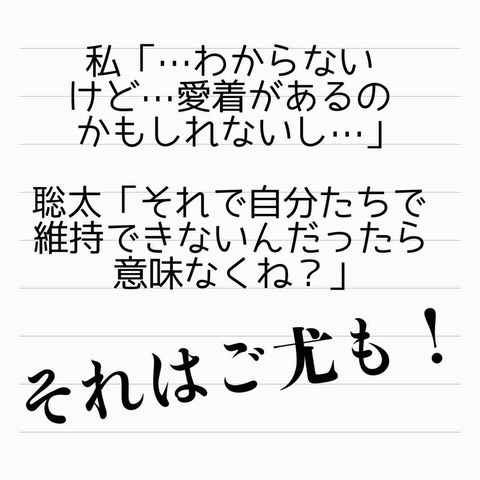 私「…わからない
けど…愛着があるの
かもしれないし…」
聡太「それで自分たちで
維持できないんだったら
意味なくね？」
それはご尤も！